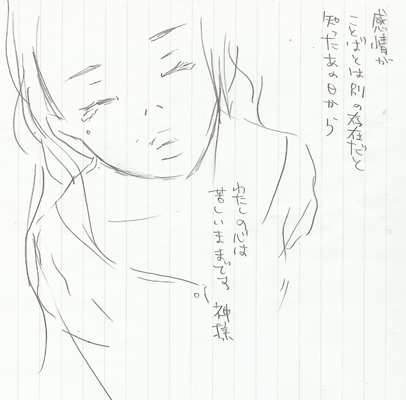 感情が
ことばとは別の存在だと
知ったあの日から
わたしの心は
苦しいままです 神様